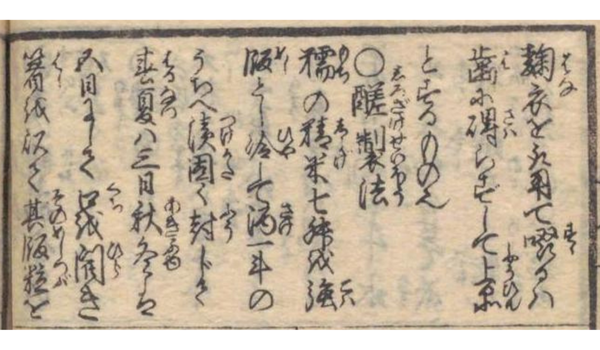 麹衣を用て啜るハ
歯に碍らずして上品
とするもの也
○醝製法
糯の精米七升を強
飯とし冷して酒一斗の
うちへ漬固く封じて
春夏ハ三日秋冬は
五日にして口を開き
箸を以て其飯粒を